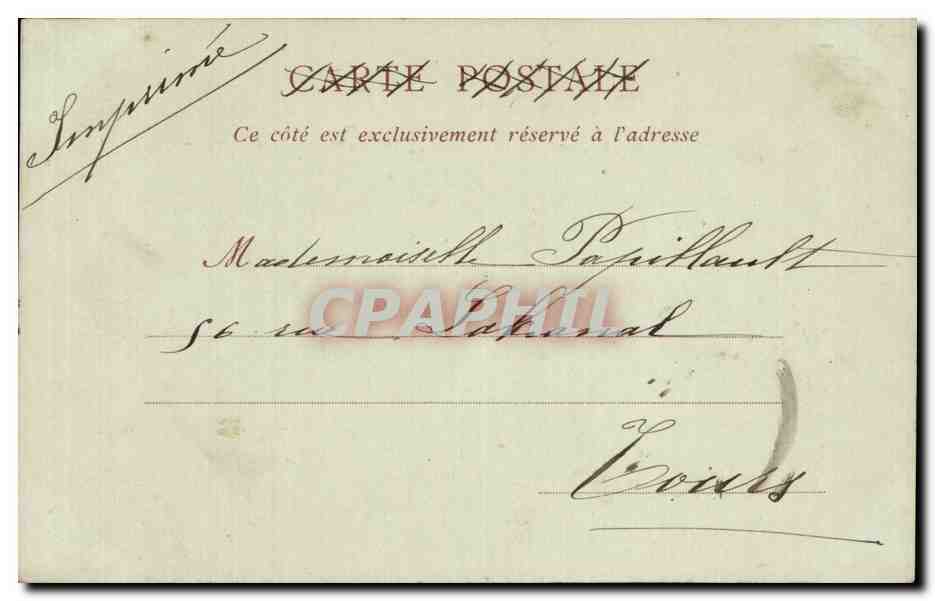 Imprimé
CARTE POSTALE
Ce côté est exclusivement réservé à l'adresse
Mademoiselle Papillault
56 rue Lakanal
CPAPHIL
Tours